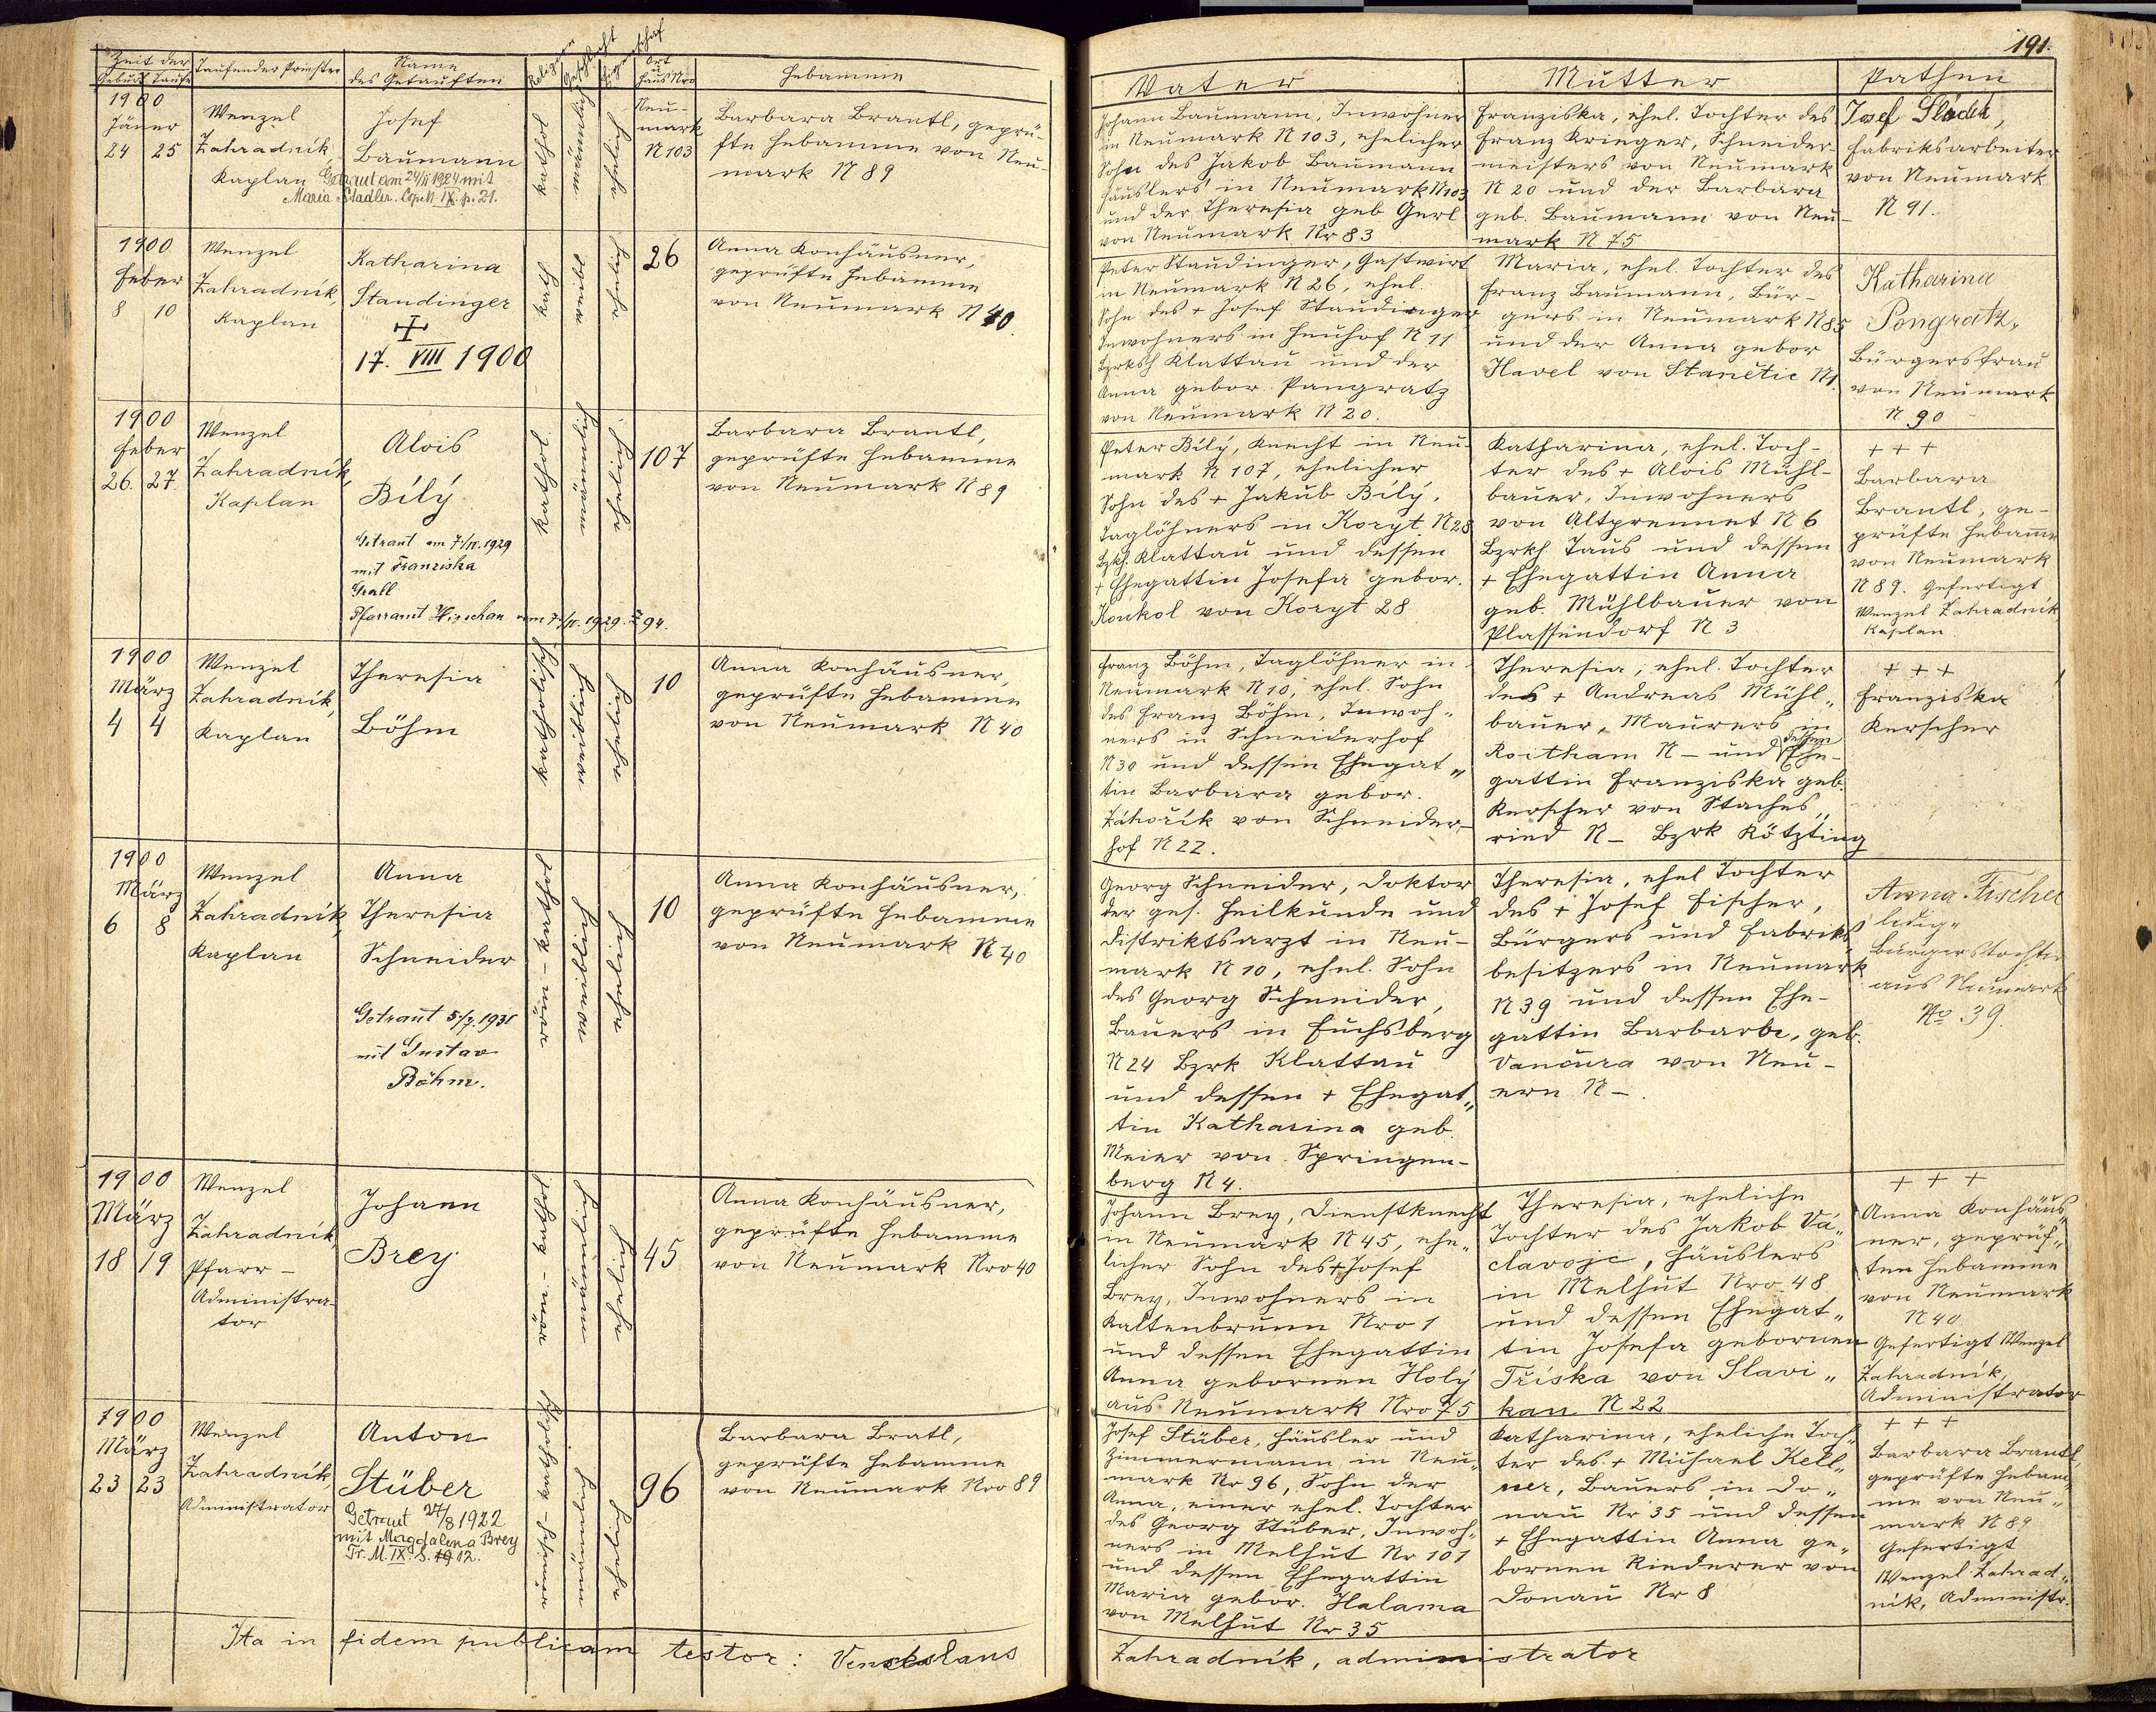 191.
Zeit der
Geburt Taufe
Taufender Priester
Name
des Getauften
Religion
Geschlecht
Ort
u
Haus Nro
Hebamme
Vater
Mutter
Pathen
1900
Jäner
24 25
Wenzel
Zahradník,
Kaplan
Josef
Baumann
Getraut am 24/II 1924 mit
Maria Stadler. Cop. N. IX. p. 21.
kathol
männlich
ehelich
Neu-
mark
N 103
Barbara Brantl, geprü-
fte Hebamme von Neu-
mark N 89
Johann Baumann, Inwohner
in Neumark N 103, ehelicher
Sohn des Jakob Baumann
Häuslers in Neumark N 103
und der Theresia geb Gerl
von Neumark Nr 83
Franziska, ehel. Tochter des
Franz Krieger, Schneider-
meisters von Neumark
N 20 und der Barbara
geb. Baumann von Neu-
mark N 75
Josef Sládek,
Fabriksarbeiter
von Neumark
N 91.
1900
Feber
8 10
Wenzel
Zahradník,
Kaplan
Katharina
Staudinger
17. VIII 1900
kath
weibl
ehelich
26
Anna Konhäusner,
geprüfte Hebamme
von Neumark N 40.
Peter Staudinger, Gastwirt
in Neumark N 26, ehel.
Sohn des + Josef Staudinger
Inwohners in Heuhof N 11
Bzrksh Klattau und der
Anna gebor. Pangratz
von Neumark N 20.
Maria, ehel. Tochter des
Franz Baumann, Bür-
gers in Neumark N 85
und der Anna gebor
Havel von Stanětic N 1.
Katharina
Pongratz,
Bürgersfrau
von Neumark
N 90
1900
Feber
26. 27.
Wenzel
Zahradník,
Kaplan
Alois
Bílý
Getraut am 7./IV. 1929
mit Franziska
Grall
Pfarramt Hirschau vom 7./IV. 1929. Z 94.
kathol.
männlich
ehelich
107
Barbara Brantl,
geprüfte Hebamme
von Neumark N 89
Peter Bílý, Knecht in Neu-
mark N 107, ehelicher
Sohn des + Jakub Bílý,
Taglöhners in Koryt N 28
Bzkh. Klattau und dessen
+ Ehegattin Josefa gebor.
Koukol von Koryt 28
Katharina, ehel. Toch-
ter des + Alois Mühl-
bauer, Inwohners
von Altprennet N 6
Bzrkh Taus und dessen
+ Ehegattin Anna
geb. Mühlbauer von
Plassendorf N 3
+ + +
Barbara
Brantl, ge-
prüfte Hebamme
von Neumark
N 89. Gefertigt
Wenzel Zahradník
Kaplan.
1900
März
4 4
Wenzel
Zahradník,
Kaplan
Theresia
Böhm
katholisch
weiblich
ehelich
10
Anna Konhäusner,
geprüfte Hebamme
von Neumark N 40
Franz Böhm, Taglöhner in
Neumark N 10, ehel. Sohn
des Franz Böhm, Inwoh-
ners in Schneiderhof
N 30 und dessen Ehegat-
tin Barbara gebor.
Záhořík von Schneider-
hof N 22.
Theresia, ehel. Tochter
des + Andreas Mühl-
bauer, Maurers in
Roitham N – und dessen Ehe-
gattin Franziska geb.
Kerscher von Staches-
ried N – Bzrk Kötzting
+ + +
Franziska
Kerscher
1900
März
6 8
Wenzel
Zahradník,
Kaplan
Anna
Theresia
Schneider
Getraut 5./7. 1931
mit Gustav
Böhm.
röm – kathol
weiblich
ehelich
10
Anna Konhäusner,
geprüfte Hebamme
von Neumark N 40
Georg Schneider, Doktor
der ges. Heilkunde und
Distriktsarzt in Neu-
mark N 10, ehel. Sohn
des Georg Schneider,
Bauers in Fuchsberg
N 24 Bzrk Klattau
und dessen + Ehegat-
tin Katharina geb.
Meier von Springen-
berg N 4.
Theresia, ehel Tochter
des + Josef Fischer,
Bürgers und Fabriks-
besitzers in Neumark
N 39 und dessen Ehe-
gattin Barbara, geb.
Vančura von Neu-
ern N –.
Anna Fischer
ledig,
Bürgerstochter
aus Neumark
No. 39.
1900
März
18 19
Wenzel
Zahradník,
Pfarr-
Administra-
tor
Johann
Brey
röm – kathol.
männlich
ehelich
45
Anna Konhäusner,
geprüfte Hebamme
von Neumark Nro 40
Johann Brey, Dienstknecht
in Neumark N 45, ehe-
licher Sohn des + Josef
Brey, Inwohners in
Kaltenbrunn Nro 1
und dessen Ehegattin
Anna gebornen Holý
aus Neumark Nro 75
Theresia, eheliche
Tochter des Jakob Vá-
clavojc, Häuslers
in Melhut Nro 48
und dessen Ehegat-
tin Josefa gebornen
Tříska von Slavi-
kau N 22
+ + +
Anna Konhäus-
ner, geprüf-
ten Hebamme
von Neumark
N 40.
Gefertigt Wenzel
Zahradník,
Administrator
1900
März
23 23
Wenzel
Zahradník,
Administrator
Anton
Stüber
Getraut 27/8 1922
mit Magdalena Brey
Tr. M. IX. S. 12.
römisch – katholisch
männlich
ehelich
96
Barbara Bratl,
geprüfte Hebamme
von Neumark Nro 89
Josef Stüber, Häusler und
Zimmermann in Neu-
mark Nr 96, Sohn der
Anna, einer ehel. Tochter
des Georg Stüber, Inwoh-
ners in Melhut Nr 101
und dessen Ehegattin
Maria gebor. Halama
von Melhut Nr 35
Katharina, eheliche Toch-
ter des + Michael Kell-
ner, Bauers in Do-
nau Nr 35 und dessen
+ Ehegattin Anna ge-
bornen Riederer von
Donau Nr 8
+ + +
Barbara Brantl,
geprüfte Hebam-
me von Neu-
mark N 89
Gefertigt
Wenzel Zahrad-
nik, Administr.
Ita in fidem publicam testor: Venceslaus
Zahradník, administrator